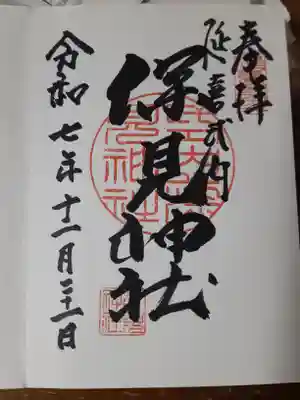 奉拝
延喜式内
深見神社
令和七年十一月二十一日